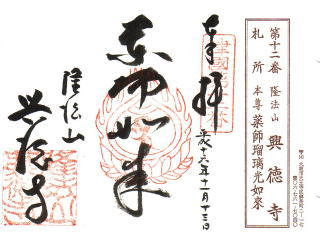 第十二番 隆法山 興徳寺
札所 本尊 薬師瑠璃光如來
奉拝
平成十六年十一月十三日
薬師如来
隆法山
興徳寺